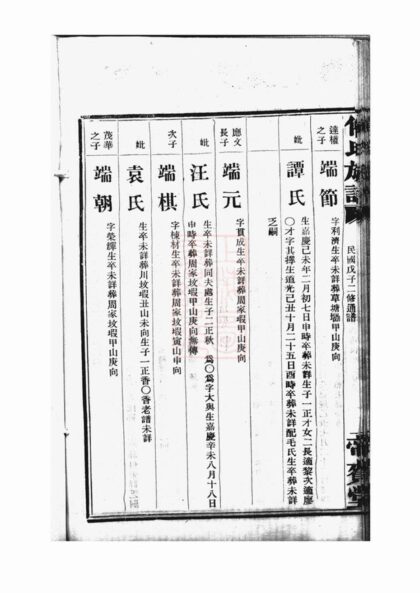 氏族譜
民國戊子二修通譜
達權之子
端節
字利濟生卒未詳葬草塘塆甲山庚向
妣
譚氏
生嘉慶己未年二月初七日申時卒葬未詳生子一正才女二長適黎次適廖
〇才字其擇生道光己丑十月二十五日酉時卒葬未詳配毛氏生卒葬未詳
乏嗣
應文長子
端元
字貫成生卒未詳葬周家坟嘏甲山庚向
妣
汪氏
生卒未詳葬同夫處生子二正秋
為〇為字大與生嘉慶辛未八月十八日
申時卒葬周家坟嘏甲山庚向無傳
次子
端棋
字棟材生卒未詳葬周家坟嘏寅山申向
妣
袁氏
生卒未詳葬川坟嘏丑山未向生子一正香〇香老譜未詳
茂華之子
端朝
字榮繹生卒未詳葬周家坟嘏甲山庚向